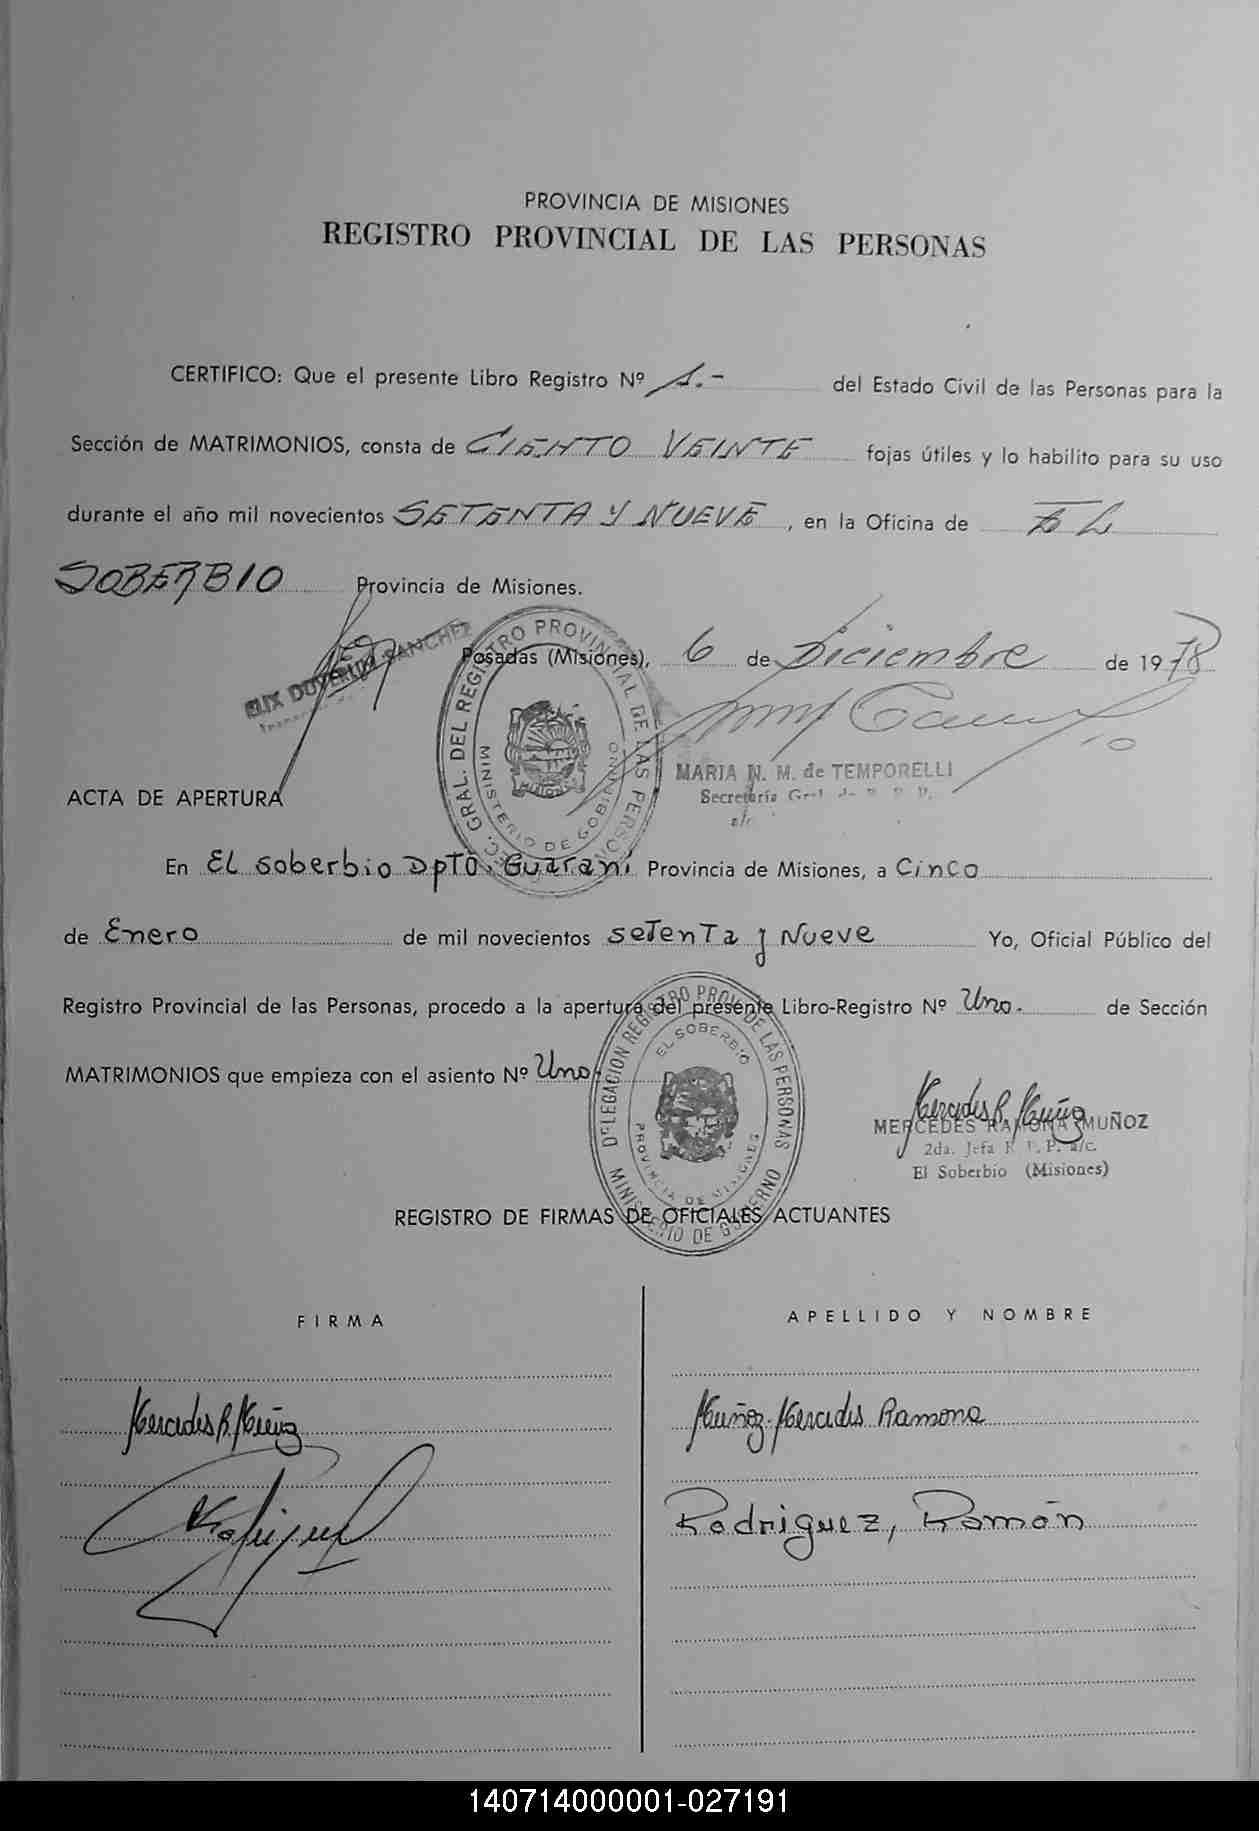 PROVINCIA DE MISIONES
REGISTRO PROVINCIAL DE LAS PERSONAS
CERTIFICO: Que el presente Libro Registro Nº 1.- del Estado Civil de las Personas para la
Sección de MATRIMONIOS, consta de CIENTO VEINTE fojas útiles y lo habilito para su uso
durante el año mil novecientos SETENTA Y NUEVE, en la Oficina de EL
SOBERBIO Provincia de Misiones.
SANCHEZ
Posadas (Misiones), 6 de Diciembre de 1978
SEC. GRAL. DEL REGISTRO PROVINCIAL DE LAS PERSONAS
MINISTERIO DE GOBIERNO
MARIA N. M. de TEMPORELLI
Secretaria Gral. de R. P. P.
a/c
ACTA DE APERTURA
En EL Soberbio DpTO. Guaraní Provincia de Misiones, a Cinco
de Enero de mil novecientos seTenTa y Nueve Yo, Oficial Público del
Registro Provincial de las Personas, procedo a la apertura del presente Libro-Registro Nº Uno. de Sección
MATRIMONIOS que empieza con el asiento Nº Uno.
DELEGACION REGISTRO PROV. DE LAS PERSONAS
EL SOBERBIO
PROVINCIA DE MISIONES
MINISTERIO DE GOBIERNO
Mercedes R. Muñoz
MERCEDES RAMONA MUÑOZ
2da. Jefa R. P. P. a/c.
El Soberbio (Misiones)
REGISTRO DE FIRMAS DE OFICIALES ACTUANTES
FIRMA
APELLIDO Y NOMBRE
Mercedes R. Muñoz
Muñoz, Mercedes Ramona
Rodriguez, Ramón
140714000001-027191